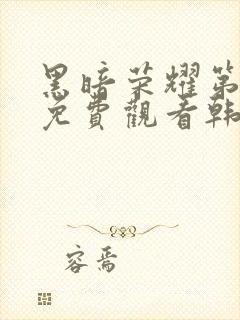 黑暗荣耀第
免費觀看韩
容焉